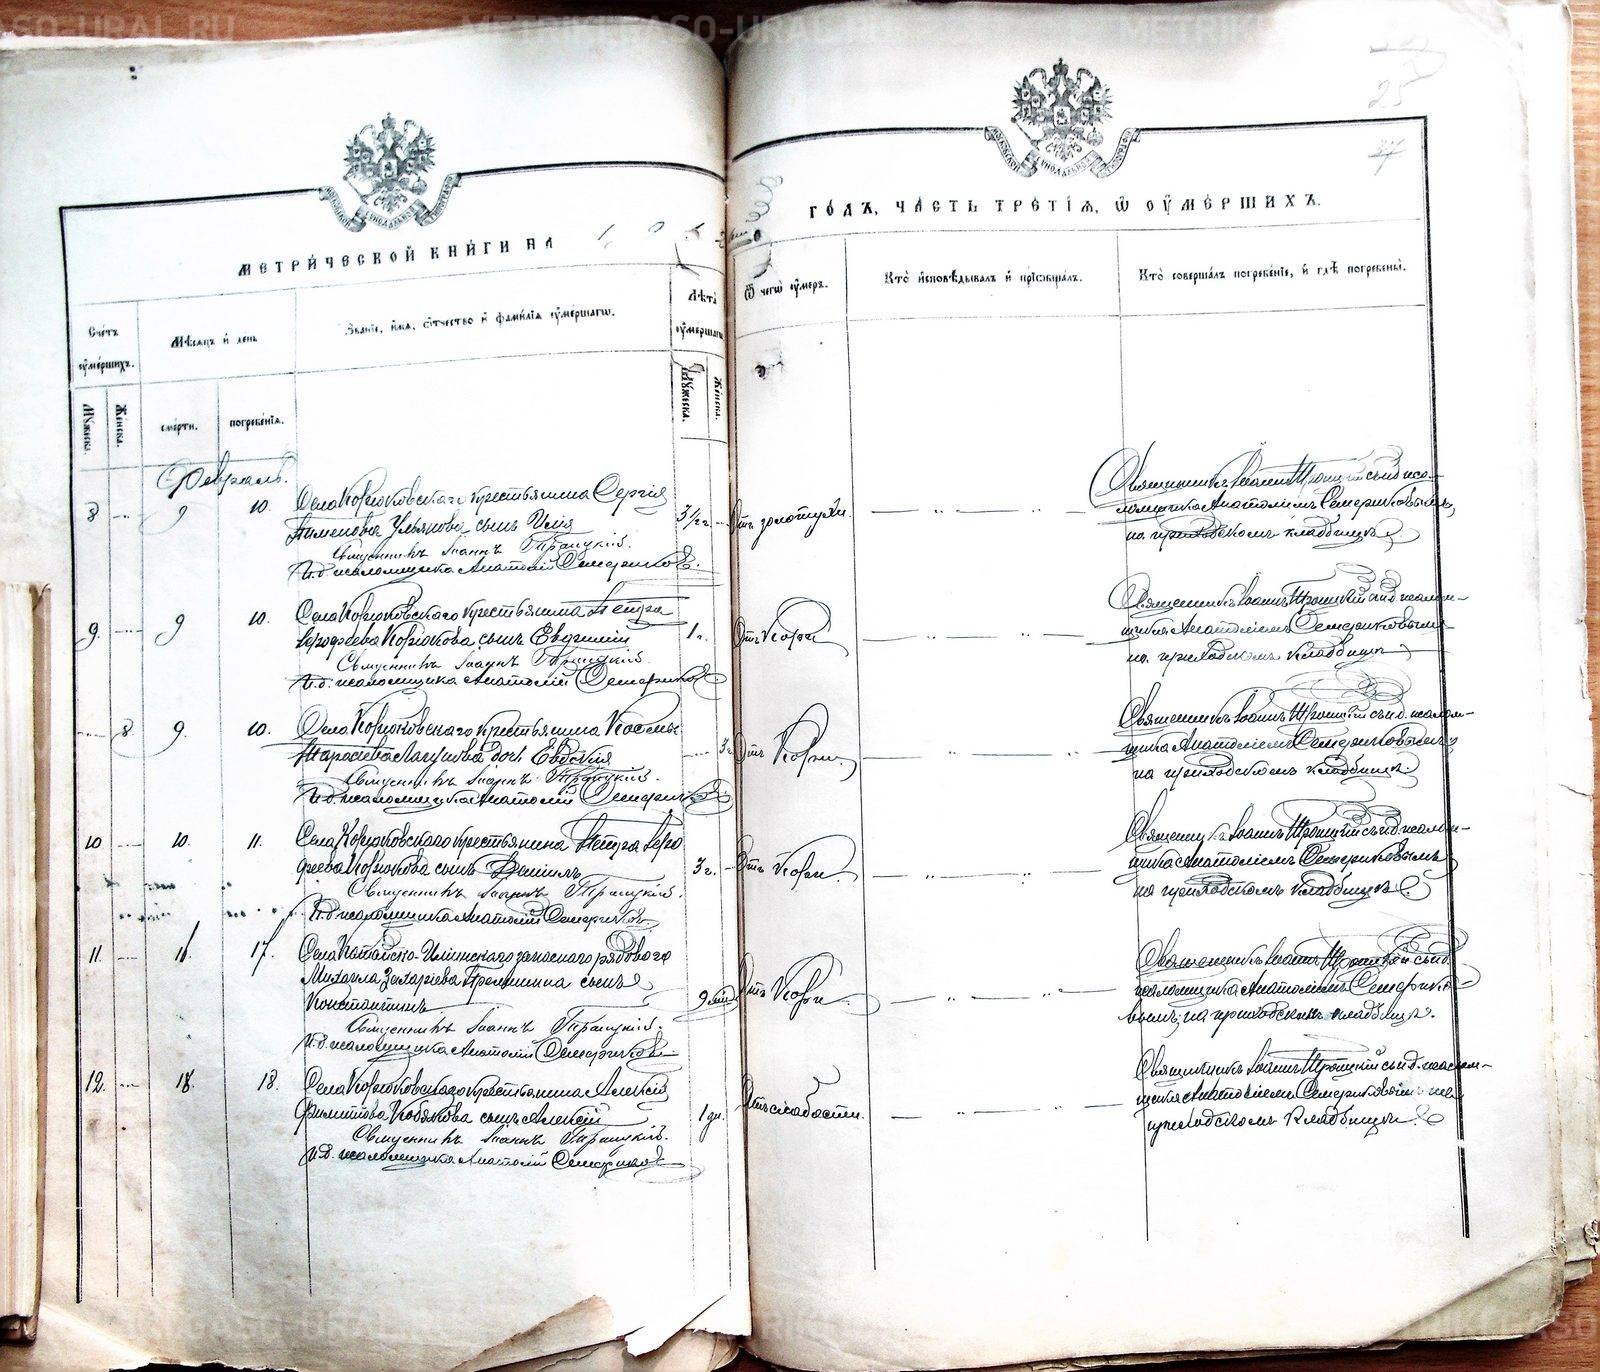 METRIKI.GASO-URAL.RU
25
37
МЕТРИЧЕСКОЙ КНИГИ НА
ГОДЪ, ЧАСТЬ ТРЕТІЯ, Ѿ ОУМЕРШИХЪ.
Счетъ оумершихъ.
Мѣсяцъ и день
Званіе, имя, отчество и фамилія оумершагѡ.
Лѣта оумершагѡ
Ѿ чегѡ оумеръ.
Кто исповѣдывалъ и пріѡбщалъ.
Кто совершалъ погребеніе, и гдѣ погребены.
Мужеска.
Женска.
смерти.
погребенія.
Мужеска.
Женска.
Февраль.
8 9 10. Села Корюковскаго крестьянина Сергія 3½ г. Отъ золотухи. Священникъ Іоаннъ Троицкій съ и.д. псаломщика Анатоліемъ Семериковымъ, на приходскомъ кладбищѣ.
Пименова Ульянова сынъ Илія
Священникъ Іоаннъ Троицкій.
И.д. псаломщика Анатолій Семериковъ.
9. 9 10. Села Корюковскаго крестьянина Петра 1 г. Отъ Кори Священникъ Іоаннъ Троицкій съ и.д. псаломщика Анатоліемъ Семериковымъ на приходскомъ кладбищѣ
Ерофеева Корюкова сынъ Евгеній
Священникъ Іоаннъ Троицкій.
И.д. псаломщика Анатолій Семериковъ
8 9. 10. Села Корюковскаго крестьянина Космы 3 Отъ Кори. Священникъ Іоаннъ Троицкій съ и.д. псаломщика Анатоліемъ Семериковымъ на приходскомъ кладбищѣ.
Тарасева дочь Евдокія
Священникъ Іоаннъ Троицкій.
И.д. псаломщика Анатолій Семериковъ
10 10. 11. Села Корюковскаго крестьянина Петра Еро 3 г. Отъ Кори. Священникъ Іоаннъ Троицкій съ и.д. псаломщика Анатоліемъ Семериковымъ на приходскомъ кладбищѣ.
феева Корюкова сынъ
Священникъ Іоаннъ Троицкій.
И.д. псаломщика Анатолій Семериковъ.
11. 16 17. Села Катайско-Ильинскаго запаснаго рядоваго Отъ Кори Священникъ Іоаннъ Троицкій съ и.д. псаломщика Анатоліемъ Семериковымъ, на приходскомъ кладбищѣ.
Михаила Захаріева сынъ 9
Константинъ
Священникъ Іоаннъ Троицкій.
И.д. псаломщика Анатолій Семериковъ
12. 18. 18. Села Корюковскаго крестьянина Алексія 1 дн. Отъ слабости. Священникъ Іоаннъ Троицкій съ и.д. псаломщика Анатоліемъ Семериковымъ на приходскомъ кладбищѣ.
Филиппова Кобякова сынъ Алексій
Священникъ Іоаннъ Троицкій.
И.д. псаломщика Анатолій Семериковъ